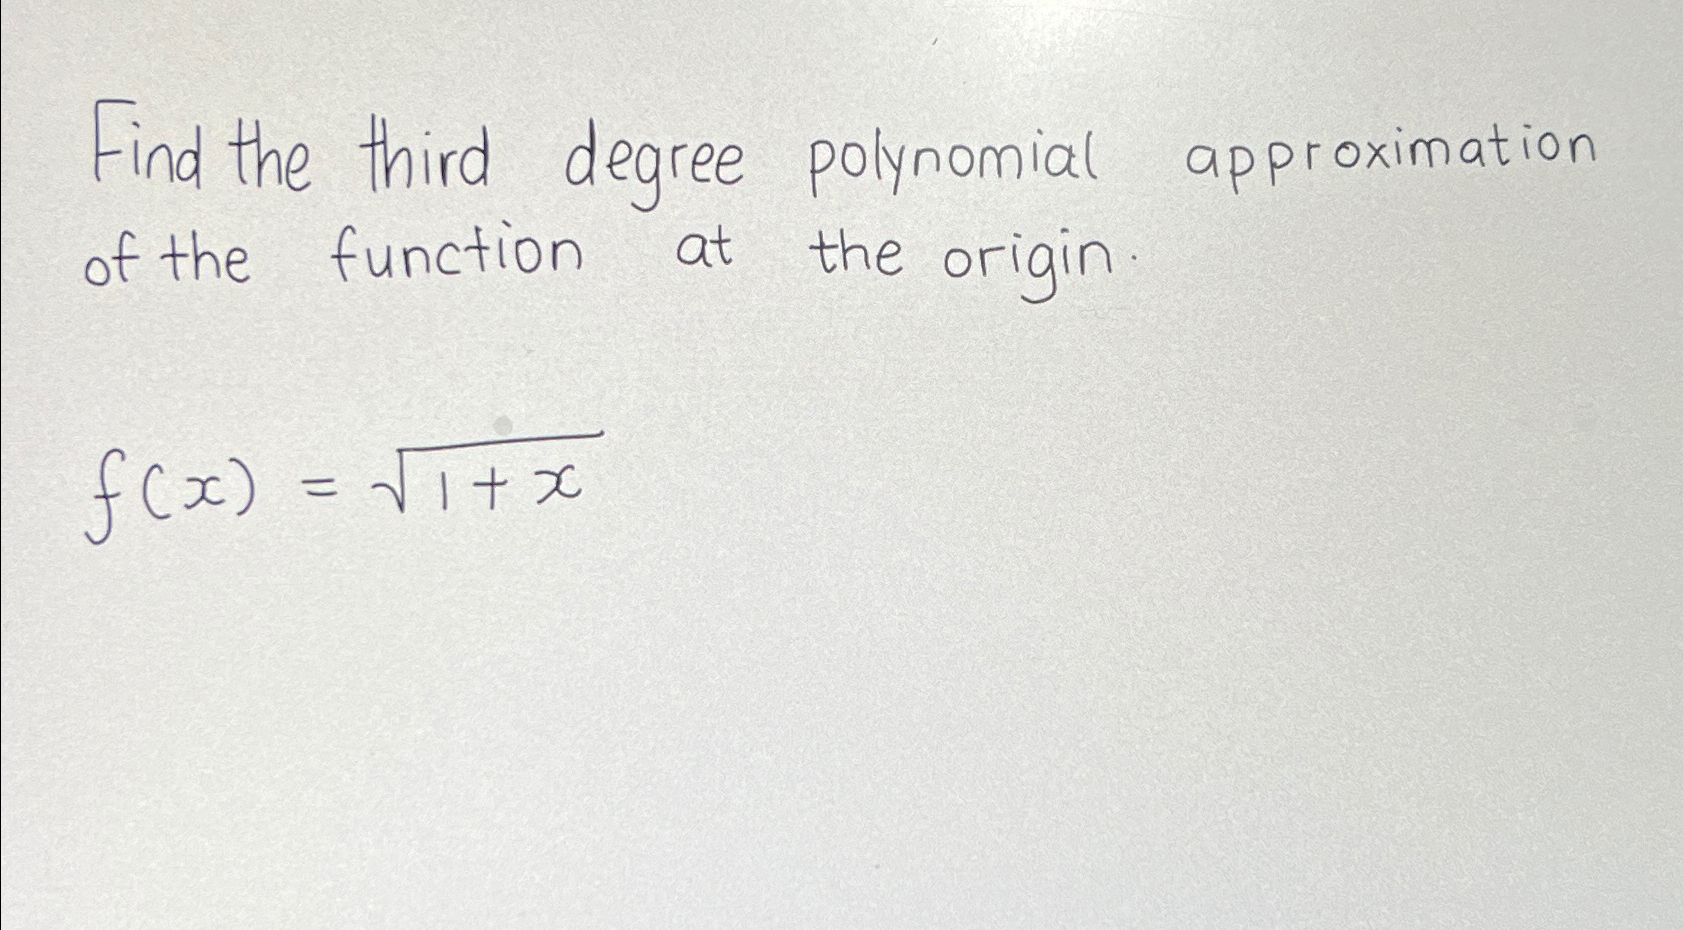 Find the third degree polynomial approximation
of the function at the origin.
f(x) = √(1 + x)